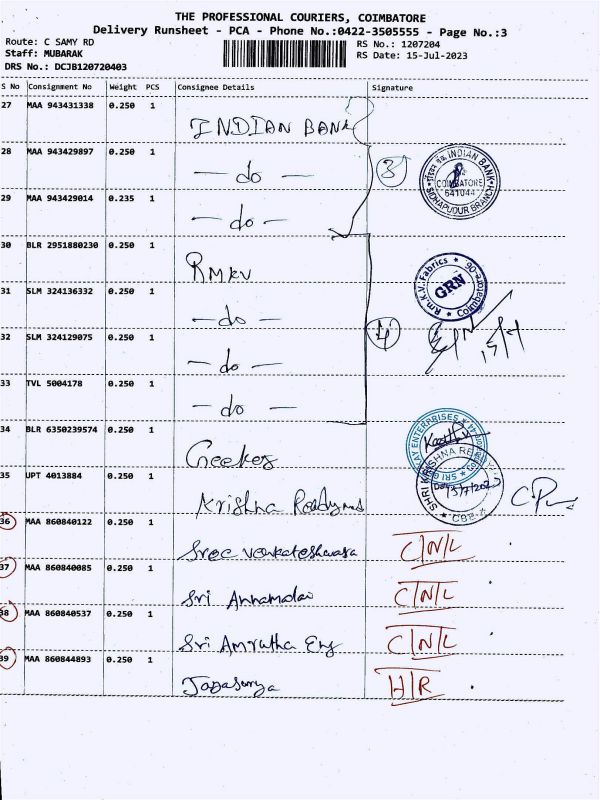 THE PROFESSIONAL COURIERS, COIMBATORE
Delivery Runsheet - PCA - Phone No.:0422-3505555 - Page No.:3
Route: C SAMY RD
Staff: MUBARAK
DRS No.: DCJB120720403
RS No.: 1207204
RS Date: 15-Jul-2023
S No Consignment No Weight PCS Consignee Details Signature
27 MAA 943431338 0.250 1 INDIAN BANK
28 MAA 943429897 0.250 1 — do — 3
INDIAN BANK
COIMBATORE
641044
SIDHAPUDUR BRANCH
29 MAA 943429014 0.235 1 — do —
30 BLR 2951880230 0.250 1 RMKV
Rm.K.V. Fabrics
GRN
Coimbatore-06
31 SLM 324136332 0.250 1 — do —
32 SLM 324129075 0.250 1 — do — 4
33 TVL 5004178 0.250 1 — do —
34 BLR 6350239574 0.250 1 Geekes
KAY ENTERPRISES
35 UPT 4013884 0.250 1 Krishna Readymas
SHRI KRISHNA RE
15/7/2023
36 MAA 860840122 0.250 1 Sree Venkateshwara C/N/L
37 MAA 860840085 0.250 1 Sri Annamalai C/N/L
38 MAA 860840537 0.250 1 Sri Amrutha Eng C/N/L
39 MAA 860844893 0.250 1 Jayasurya H/R